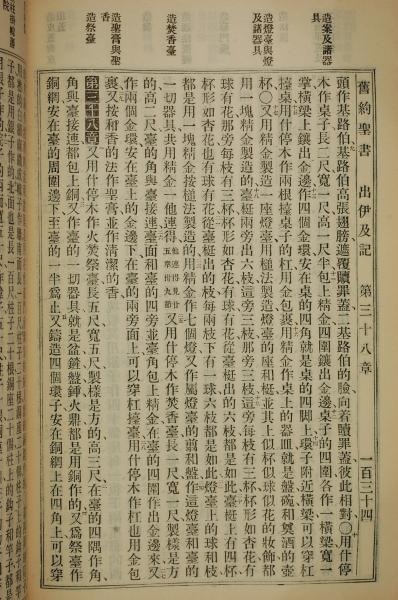 造案及諸器具
造燈臺與燈及諸器具
造焚香臺
造聖膏與聖香
造祭臺
舊約聖書 出伊及記 第三十八章 一百三十四
頭作基路伯基路伯高張翅膀遮覆贖罪蓋二基路伯的臉向着贖罪蓋彼此相對〇用什停
木作桌子長二尺寬一尺高一尺半包上精金四圍鑲出金邊桌子的四圍各作一橫梁寬一
掌橫梁上鑲出金邊作四個金環安在桌的四角就是桌的四脚上環子附近橫梁可以穿杠
擡桌用什停木作兩根擡桌子的杠用金包裹用精金作桌上的器皿就是盤碗和奠酒的壺
杯〇又用精金製造一座燈臺用槌法製造燈臺的座和梃並其上似杯似球似花的妝飾都
用一塊精金製造的臺梃兩旁出六枝這旁三枝那旁三枝這旁每枝有三杯形如杏花有
球有花那旁每枝有三杯形如杏花有球有花從臺梃出的六枝都是如此臺梃上有四杯
杯形如杏花也有球有花從臺梃出的枝每兩枝下有一球六枝都是如此燈臺上的球和枝
都是用一塊精金接槌法製造的用精金作七個燈又作屬燈臺的剪和盤作這燈臺和臺的
一切器具共用精金一他連得又用什停木作焚香臺長一尺寬一尺製樣是方
的高二尺臺的角與臺接連臺面和臺的四旁並臺角包上精金在臺的四圍作出金邊來又
作兩個金環安在臺上的金邊下在臺的兩旁面上可以穿杠擡臺用什停木作杠也用金包
裹又按和香的法作聖膏並作清潔的香
第三十八章又用什停木作火焚祭臺長五尺寬五尺製樣是方的高三尺在臺的四隅作角
角與臺接連都包上銅又作臺的一切器具就是盆鏟盤鍤火鼎都是用銅作的又爲祭臺作
銅網安在臺的周圍邊下至臺的一半爲止又鑄造四個環子安在銅網上在四角上可以穿